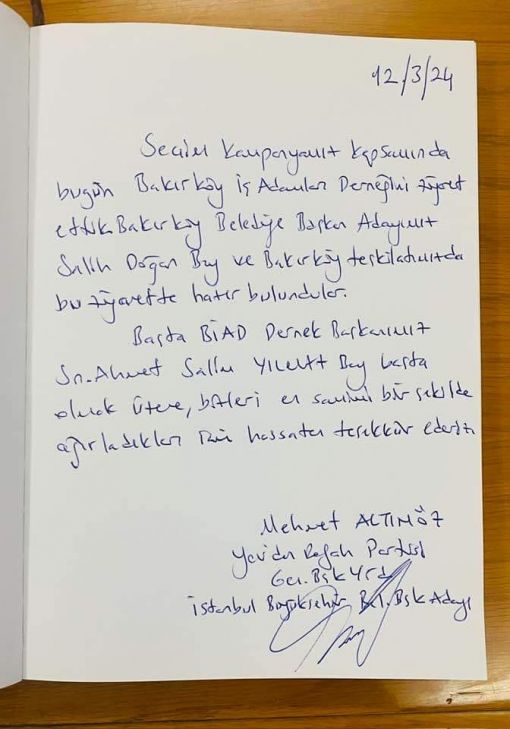 12/3/24
Seçim Kampanyamız Kapsamında
bugün Bakırköy İş Adamları Derneğini ziyaret
ettik. Bakırköy Belediye Başkan Adayımız
Salih Doğan Bey ve Bakırköy teşkilatımızda
bu ziyarette hazır bulundular.
Başta BİAD Dernek Başkanımız
Sn. Ahmet YILMAZ Bey başta
olmak üzere, bizleri en samimi bir şekilde
ağırladıkları için hassaten teşekkür ederiz
Mehmet ALTINÖZ
Yeniden Refah Partisi
Gen. Bşk Yrd
İstanbul Büyükşehir Bel. Bşk Adayı